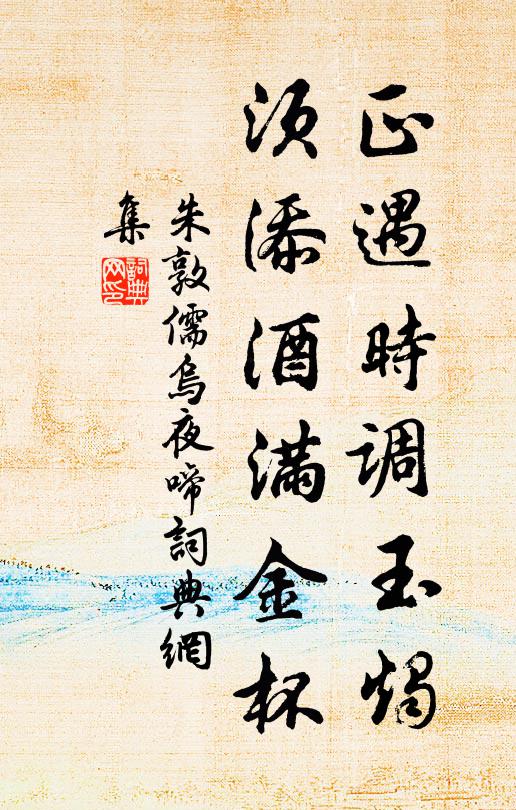 正遇時调玉燭
须添酒满金杯
朱敦儒烏夜啼詞典網
集
詞典
网印